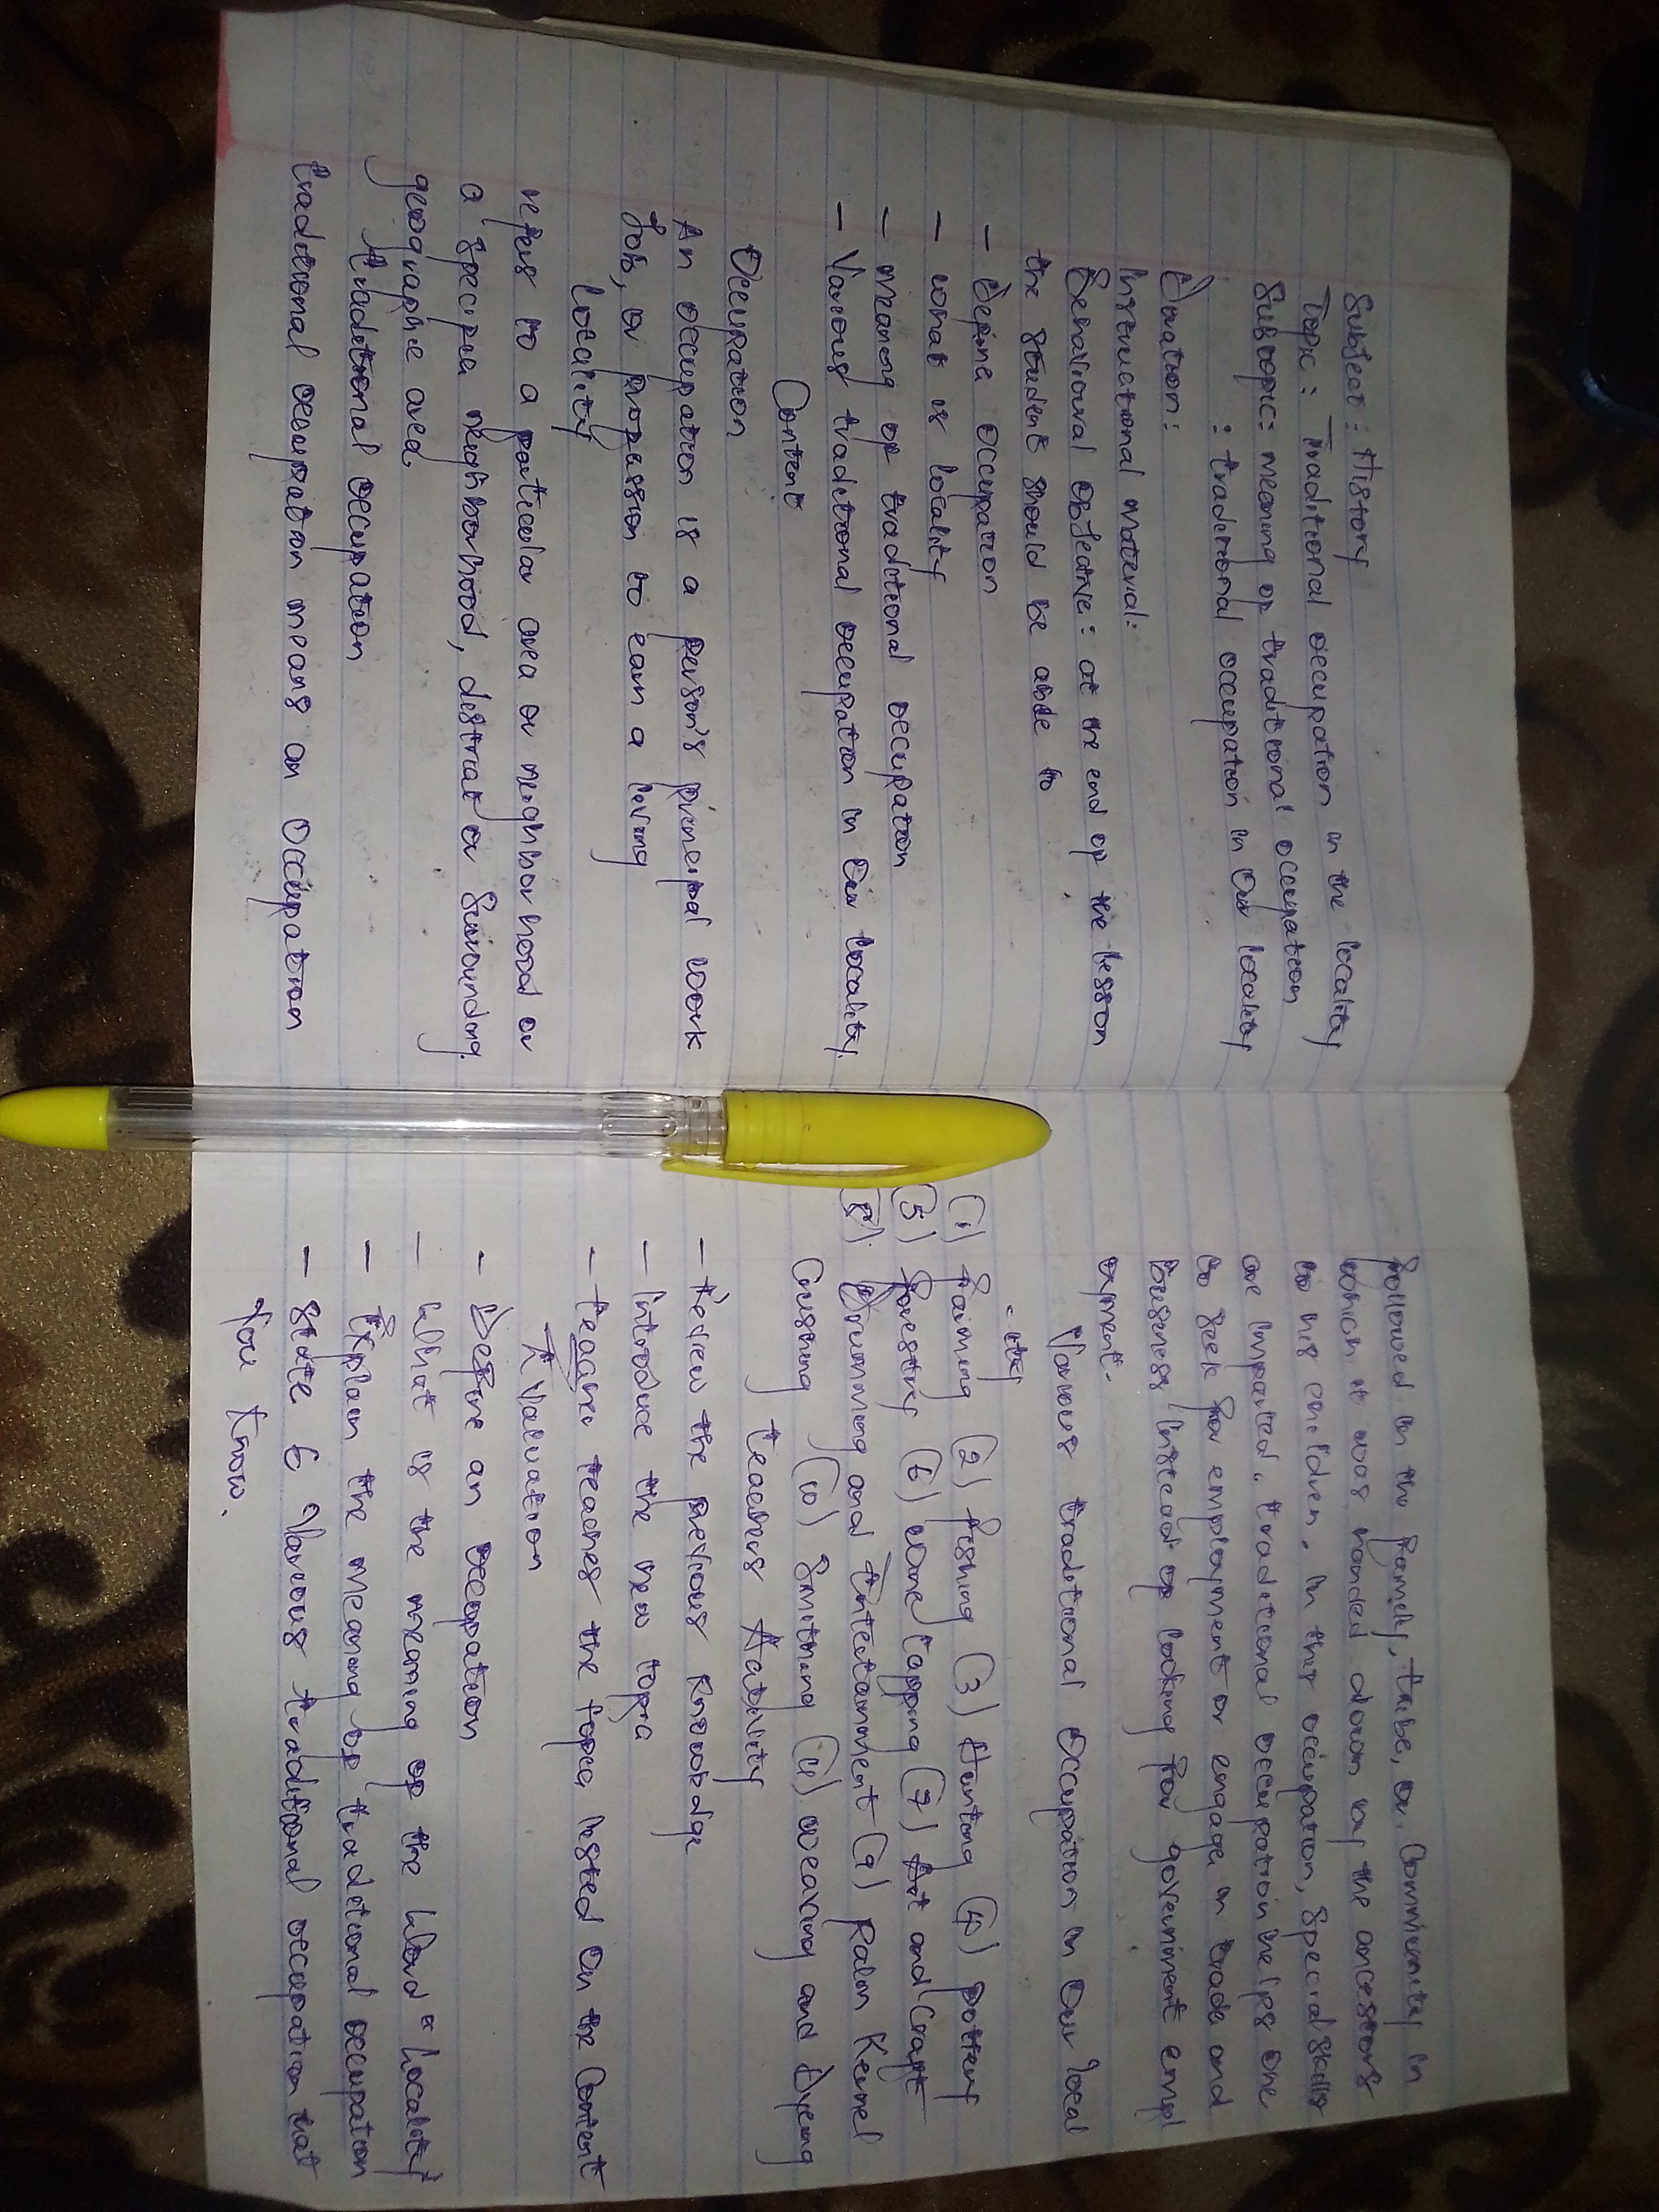 Subject : History
Topic : Traditional occupation in the locality
Subtopic: meaning of traditional occupation
: traditional occupation in Our locality
Duration :
Instructional material:
Behavioural objective : at the end of the lesson
the student should be able to
- Define occupation
- what is locality
- meaning of traditional occupation
- Various traditional occupation in Our locality.
Content
Occupation
An occupation is a person's principal work
Job, or profession to earn a living
locality
refers to a particular area or neighborhood or
a specific neighborhood, district or Surrounding
geographic area.
traditional occupation
traditional occupation means an Occupation
followed in the family, tribe, or Community in
which it was handed down by the ancestors
to his children. In this occupation, Special skills
are imparted. traditional occupation helps one
to seek for employment or engage in trade and
business instead of looking for government empl
oyment.
Various traditional Occupation in Our local
-ity
(1) Farming (2) fishing (3) Hunting (4) pottery
(5) Forestry (6) wine tapping (7) Art and Craft
(8). Drumming and Entertainment (9) Palm Kernel
Crushing (10) Smithing (11) weaving and Dyeing
teachers Activity
- Review the previous knowledge
- Introduce the new topic
- teacher teaches the topic listed On the Content
Evaluation
- Define an occupation
- What is the meaning of the Word "locality"
- Explain the meaning of traditional occupation
- State 6 Various traditional occupation that
You know.